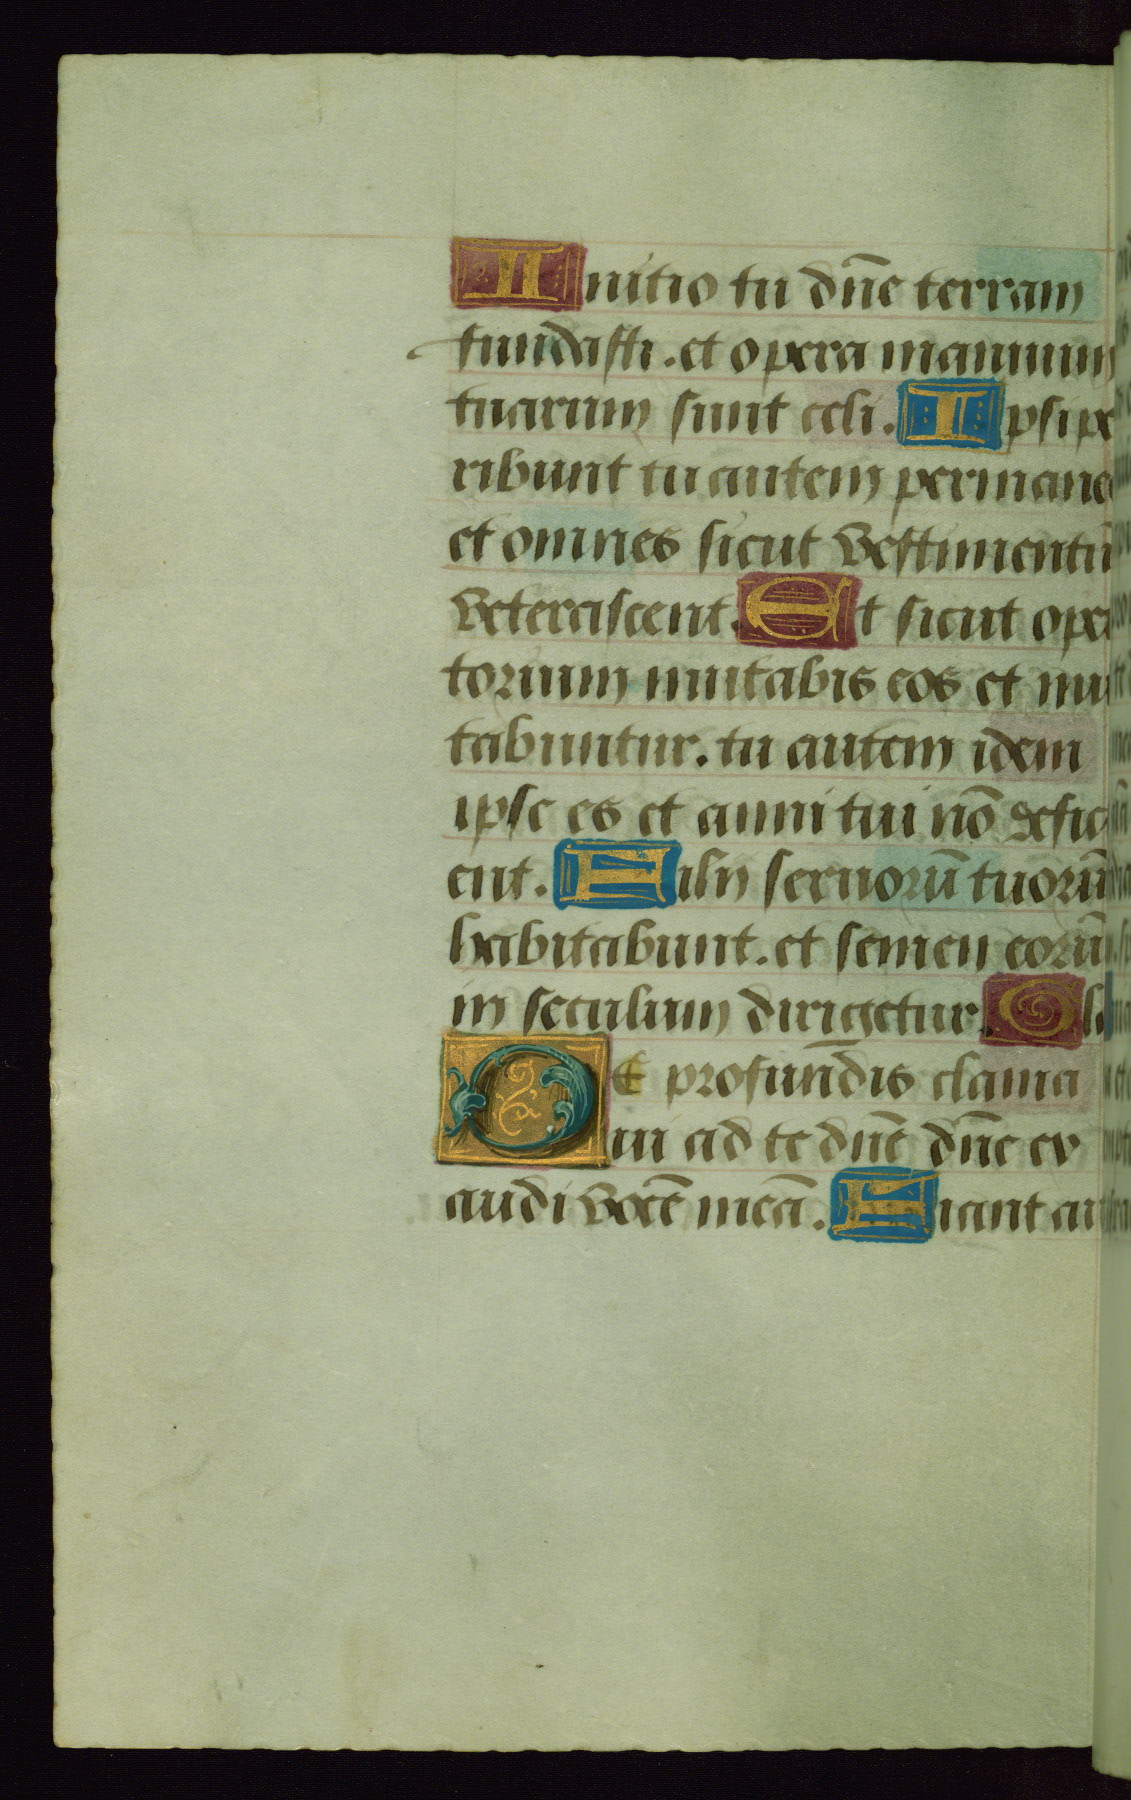 Initio tu dñe terram
fundasti. et opera manuum
tuarum sunt celi. Ipsi pe
ribunt tu autem permane
et omnes sicut vestimentũ
veterascent. Et sicut oper
torium mutabis eos et mu
tabuntur. tu autem idem
ipse es et anni tui nõ defici
ent. Filij seruorũ tuorũ
habitabunt. et semen eorũ
in seculum dirigetur. Gl
De profundis clama
ui ad te dñe dñe ex
audi vocẽ meã. Fiant au